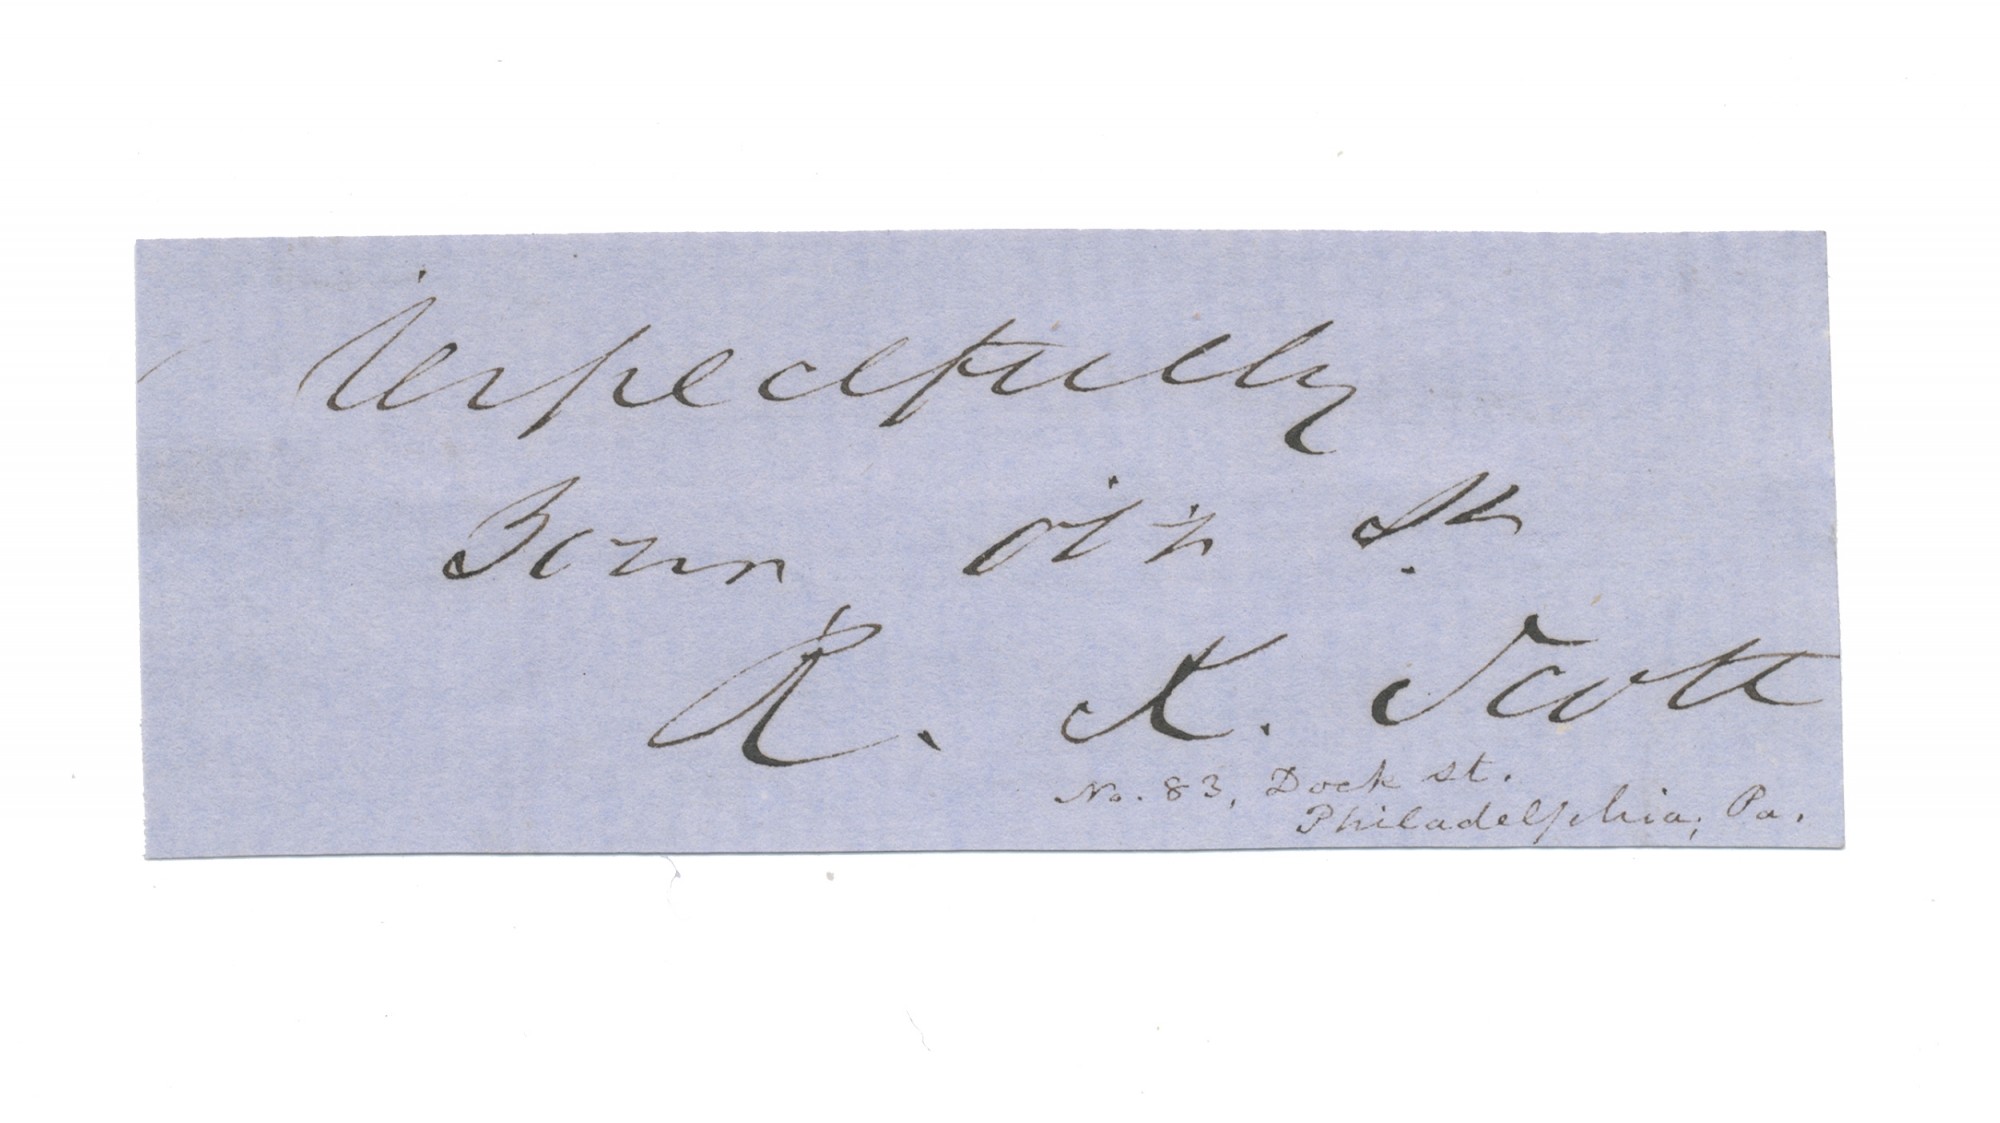 Respectfully
Your obt
R. K. Scott
No. 83, Dock st.
Philadelphia, Pa.